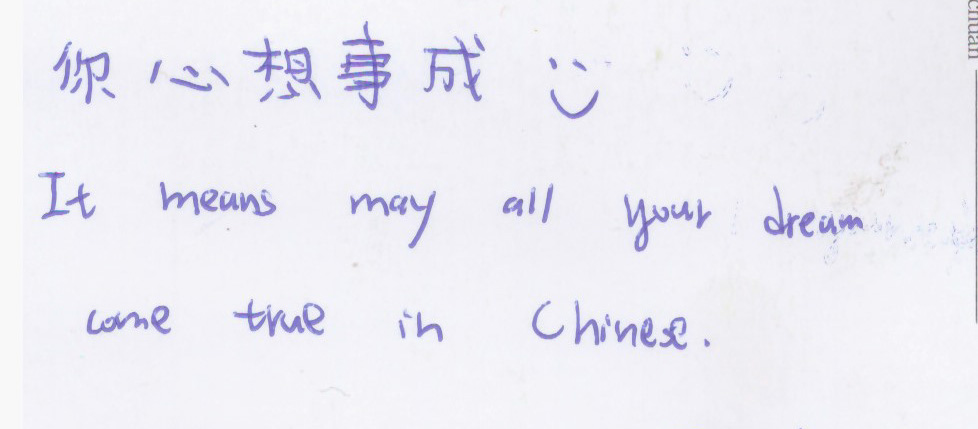 你心想事成
It means may all your dream
come true in Chinese.
chuan